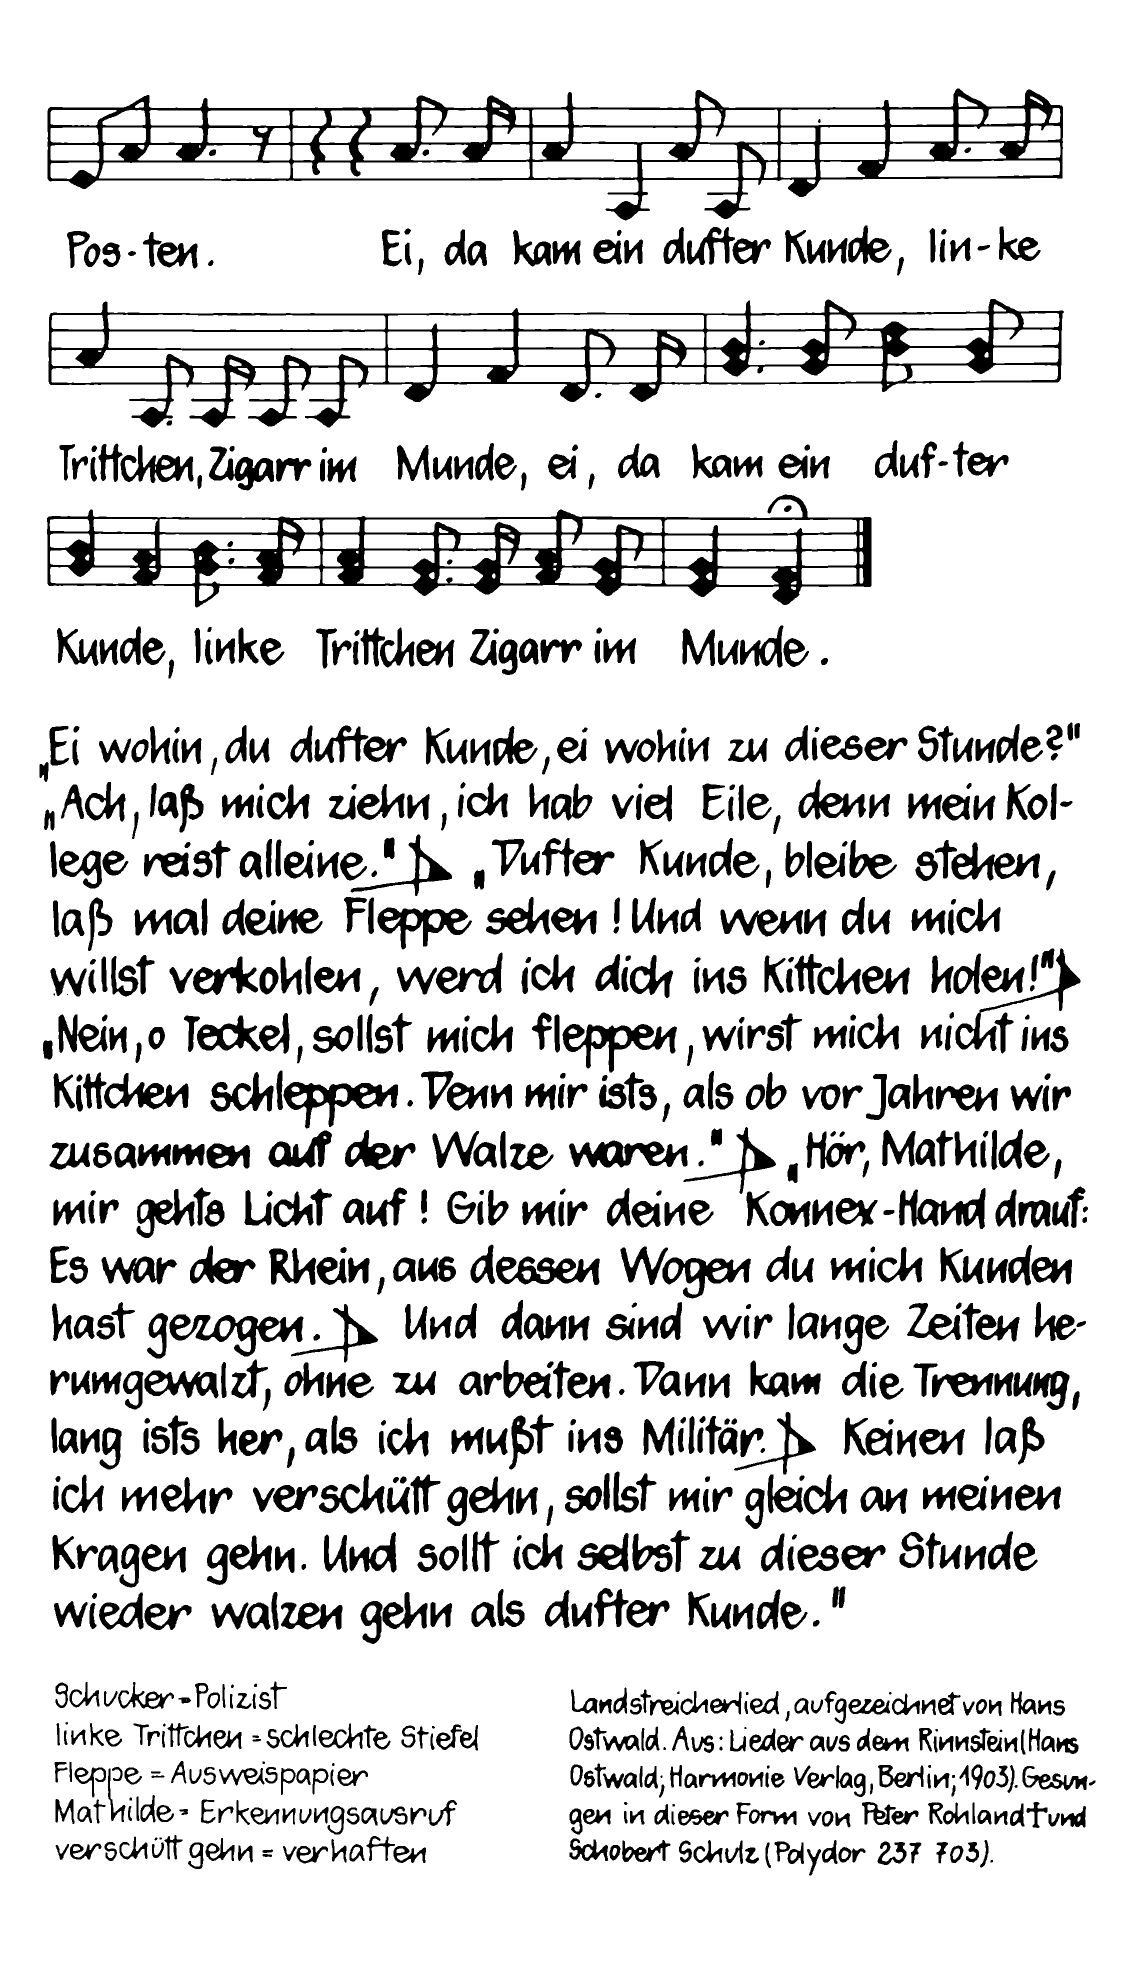 Pos-ten. Ei, da kam ein dufter Kunde, lin-ke
Trittchen, Zigarr im Munde, ei, da kam ein duf-ter
Kunde, linke Trittchen Zigarr im Munde.
„Ei wohin, du dufter Kunde, ei wohin zu dieser Stunde?"
„Ach, laß mich ziehn, ich hab viel Eile, denn mein Kol-
lege reist alleine." „Dufter Kunde, bleibe stehen,
laß mal deine Fleppe sehen! Und wenn du mich
willst verkohlen, werd ich dich ins Kittchen holen!"
„Nein, o Teckel, sollst mich fleppen, wirst mich nicht ins
Kittchen schleppen. Denn mir ists, als ob vor Jahren wir
zusammen auf der Walze waren." „Hör, Mathilde,
mir gehts Licht auf! Gib mir deine Konnex-Hand drauf:
Es war der Rhein, aus dessen Wogen du mich Kunden
hast gezogen. Und dann sind wir lange Zeiten he-
rumgewalzt, ohne zu arbeiten. Dann kam die Trennung,
lang ists her, als ich mußt ins Militär. Keinen laß
ich mehr verschütt gehn, sollst mir gleich an meinen
Kragen gehn. Und sollt ich selbst zu dieser Stunde
wieder walzen gehn als dufter Kunde."
Schucker = Polizist
linke Trittchen = schlechte Stiefel
Fleppe = Ausweispapier
Mathilde = Erkennungsausruf
verschütt gehn = verhaften
Landstreicherlied, aufgezeichnet von Hans
Ostwald. Aus: Lieder aus dem Rinnstein (Hans
Ostwald; Harmonie Verlag, Berlin; 1903). Gesun-
gen in dieser Form von Peter Rohland † und
Schobert Schulz (Polydor 237 703).